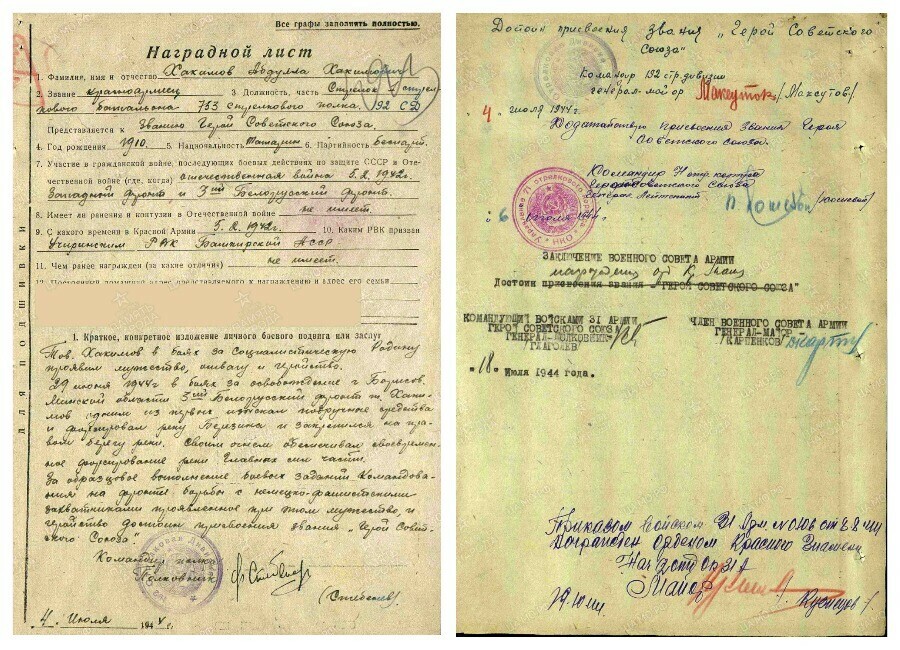 Все графы заполнять полностью.
Наградной лист
1. Фамилия, имя и отчество Хакимов Абдулла Хакимович
2. Звание красноармеец 3. Должность, часть Стрелок - стрел-
кового батальона 753 стрелкового полка. 192 СД
Представляется к Званию Герой Советского Союза.
4. Год рождения 1910. 5. Национальность Татарин 6. Партийность Беспарт.
7. Участие в гражданской войне, последующих боевых действиях по защите СССР и Оте-
чественной войне (где, когда) отечественная война 5.2.1942г.
Западный фронт и 3ий Белорусский фронт.
8. Имеет ли ранения и контузии в Отечественной войне не имеет.
9. С какого времени в Красной Армии 5.2.1942г. 10. Каким РВК призван
РВК Башкирской АССР.
11. Чем ранее награжден (за какие отличия) не имеет.
1. Краткое, конкретное изложение личного боевого подвига или заслуг
Тов. Хакимов в боях за Социалистическую Родину
проявил мужество, отвагу и геройство.
29 июня 1944г в боях за освобождение г. Борисов.
Минской области 3ий Белорусский фронт т. Хаки-
мов одним из первых изыскал подручные средства
и форсировал реку Березина и закрепился на пра-
вом берегу реки. Своим огнем обеспечивал своевремен-
ное форсирование реки Главных сил части.
За образцовое выполнение боевых заданий Командова-
ния на фронте борьбы с немецко-фашистскими
захватчиками проявленное при этом мужество и
геройство достоин присвоения звания „Герой Совет-
ского Союза"
Командир полка
Полковник
4. Июля 194 4 г.
ДЛЯ ПОДШИВКИ
Достоин присвоения звания „Герой Советского
Союза"
Командир 192 стр. дивизии
генерал-майор /Максутов/
4 июля 1944г.
Ходатайствую присвоения Звания Героя
Советского Союза.
Командир 71 стр. корпуса
Герой Советского Союза
Генерал Лейтенант
6 июля 1944
Управление 71 Стрелкового
НКО
ЗАКЛЮЧЕНИЕ ВОЕННОГО СОВЕТА АРМИИ
награждения орд. Кр. Знамя
Достоин присвоения звания - "ГЕРОЙ СОВЕТСКОГО СОЮЗА"
КОМАНДУЮЩИЙ ВОЙСКАМИ 31 АРМИИ
ГЕРОЙ СОВЕТСКОГО СОЮЗА
ГЕНЕРАЛ-ПОЛКОВНИК
/ГЛАГОЛЕВ/
ЧЛЕН ВОЕННОГО СОВЕТА АРМИИ
ГЕНЕРАЛ-МАЙОР
/КАРПЕНКОВ/
"18" Июля 1944 года.
Приказом Войскам 31 Арм. №0106 от 2.8.44
Награжден Орденом Красного Знамени
Майор
/Кузнецов/